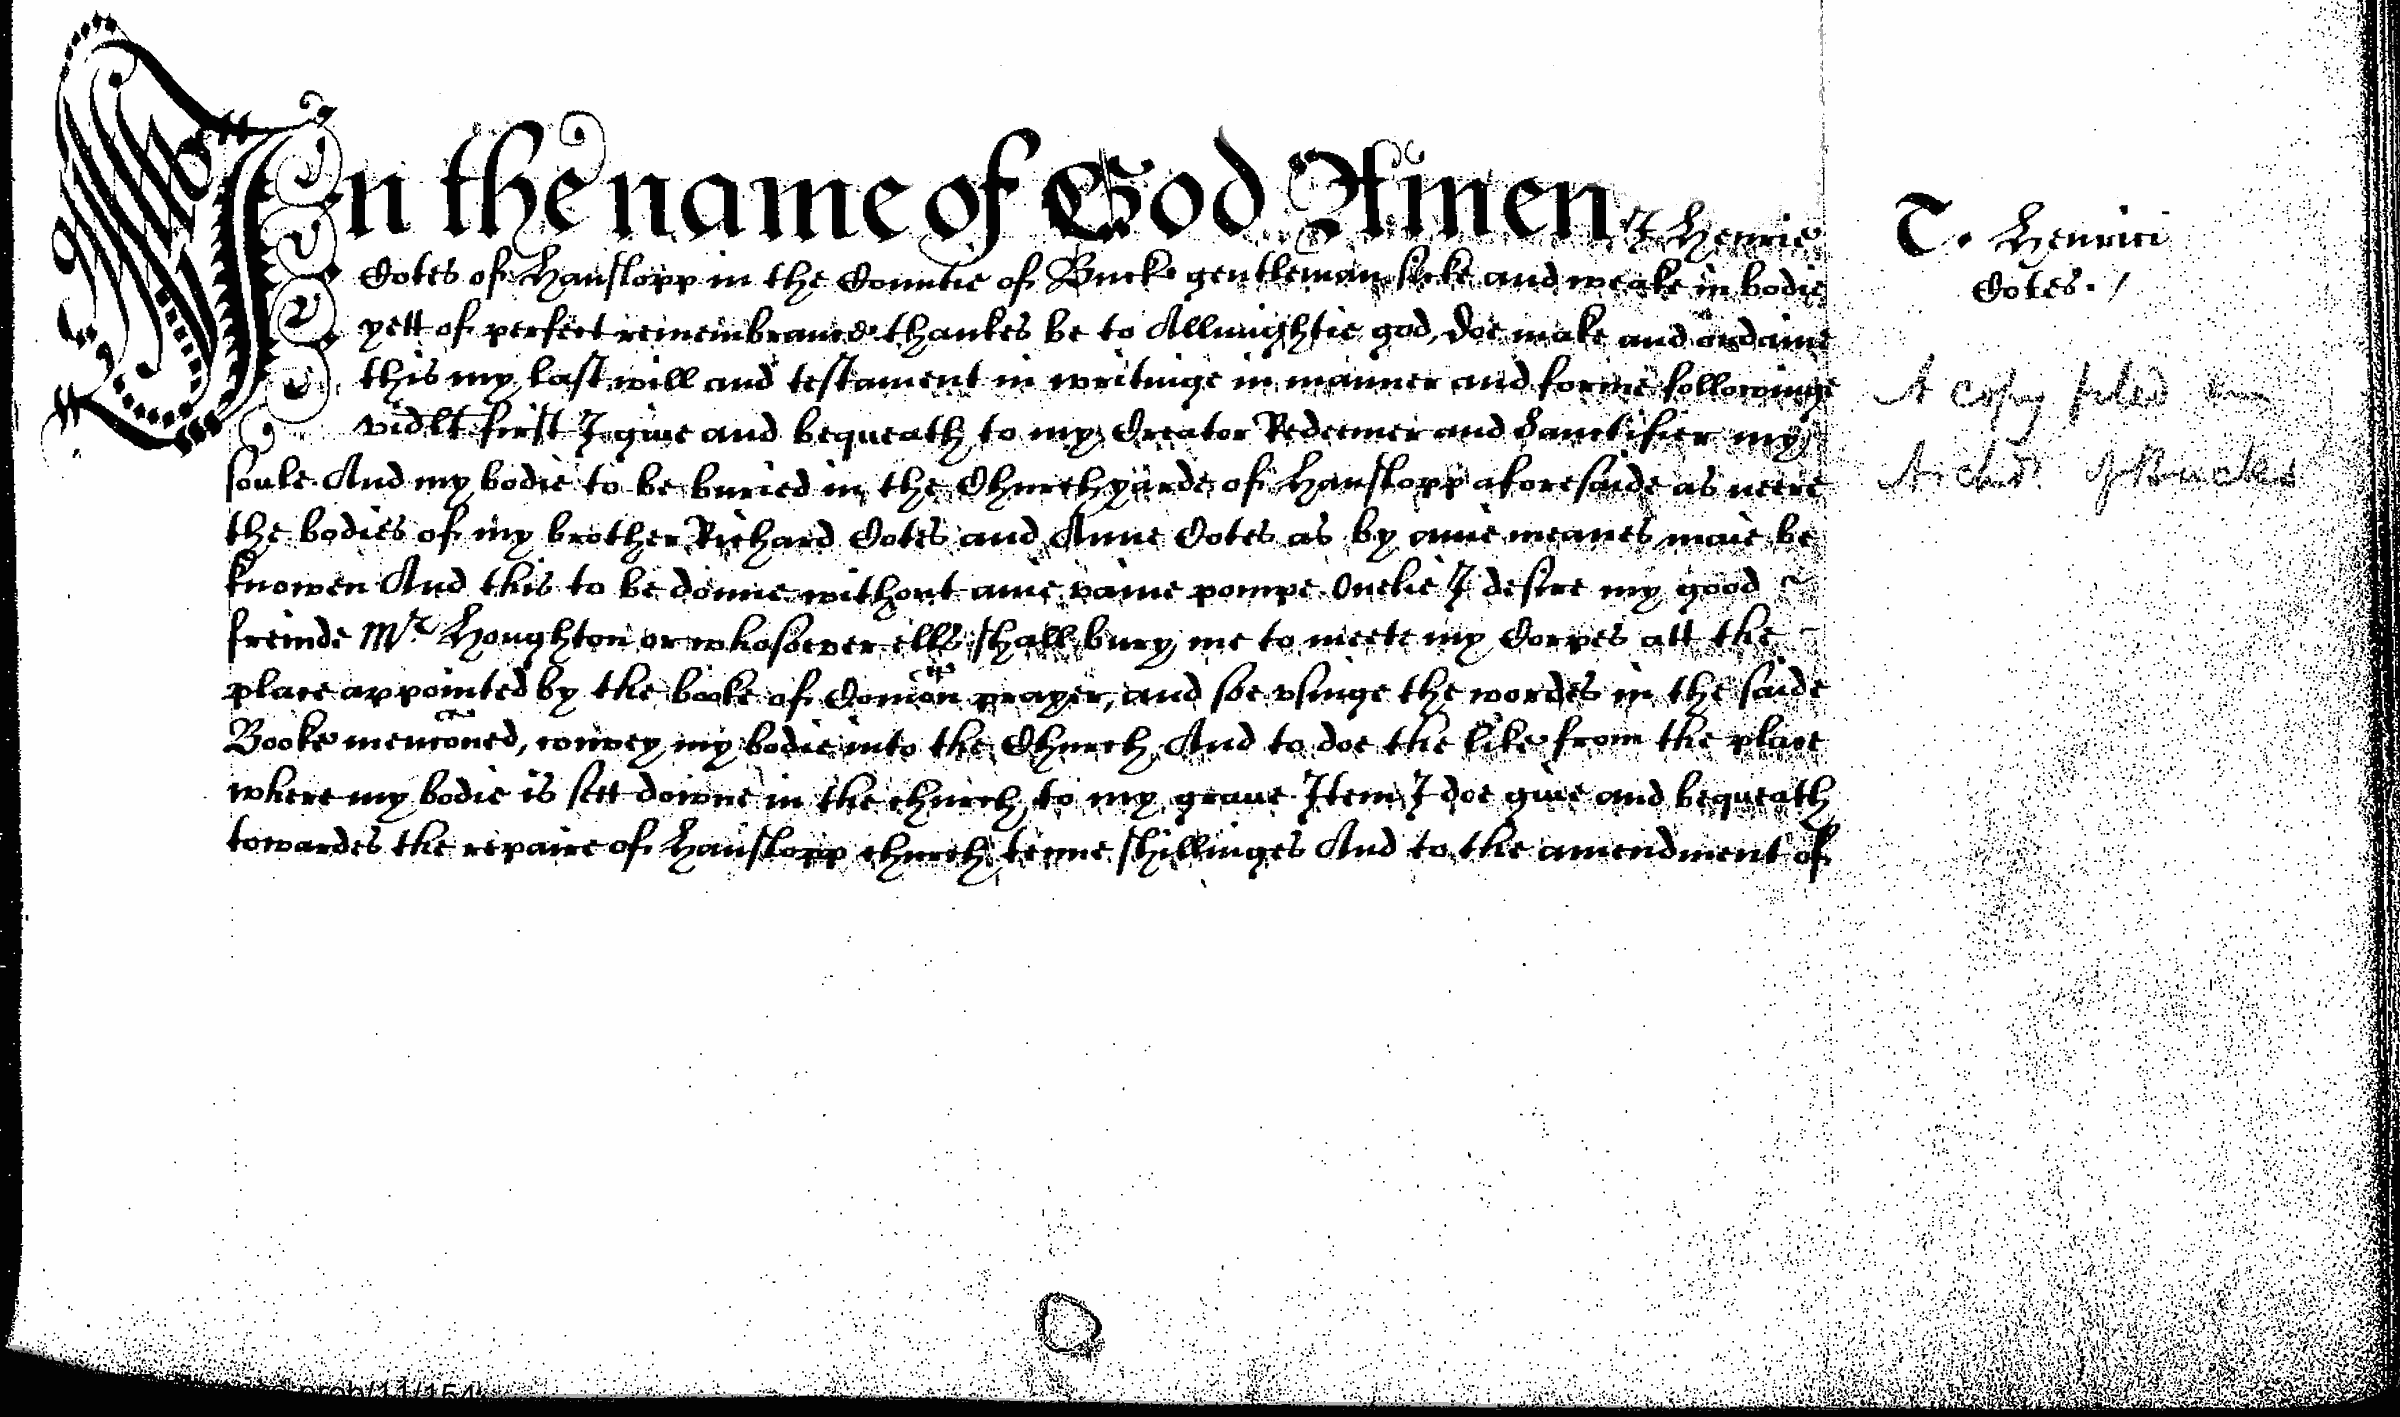 In the name of God Amen I Henrie
Cotes of Hanslopp in the Countie of Buck gentleman sicke and weake in bodie
yett of perfect remembrance thankes be to Allmightie god, doe make and ordaine
this my last will and testament in writinge in manner and forme followinge
vidlt first I give and bequeath to my Creator Redeemer and Sanctifier my
soule. And my bodie to be buried in the Churchyarde of Hanslopp aforesaide as neere
the bodies of my brother Richard Cotes and Anne Cotes as by anie meanes maie be
knowen And this to be donne without anie vaine pompe. Onelie I desire my good
freinde Mr. Houghton or whosoever ells shall bury me to meete my Corpes att the
place appointed by the booke of Comon prayer, and soe vsinge the wordes in the saide
Booke menconed, convey my bodie into the Church, And to doe the like from the place
where my bodie is sett downe in the church to my grave Item I doe give and bequeath
towardes the repaire of Hanslopp church tenne shillinges And to the amendment of
T. Henrici
Cotes. /
A copy filed in
Archd. of Bucks
prob/11/154